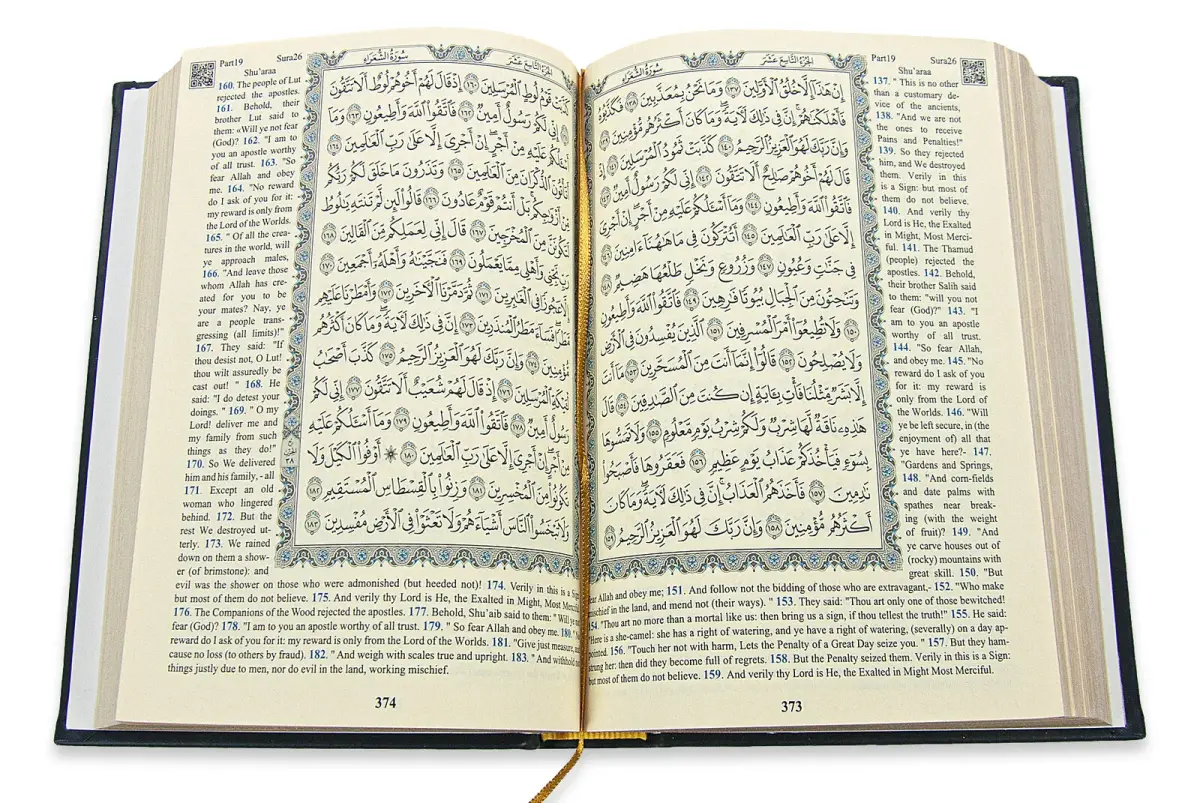 Part19 Sura26
Shu'araa
سُورَةُ الشُّعَرَاءِ
الجُزْءُ التَّاسِعَ عَشَرَ
إِنْ هَٰذَآ إِلَّا خُلُقُ ٱلْأَوَّلِينَ ١٣٧ وَمَا نَحْنُ بِمُعَذَّبِينَ ١٣٨ فَكَذَّبُوهُ
فَأَهْلَكْنَٰهُمْ إِنَّ فِى ذَٰلِكَ لَءَايَةً وَمَا كَانَ أَكْثَرُهُم مُّؤْمِنِينَ ١٣٩
وَإِنَّ رَبَّكَ لَهُوَ ٱلْعَزِيزُ ٱلرَّحِيمُ ١٤٠ كَذَّبَتْ ثَمُودُ ٱلْمُرْسَلِينَ ١٤١ إِذْ
قَالَ لَهُمْ أَخُوهُمْ صَٰلِحٌ أَلَا تَتَّقُونَ ١٤٢ إِنِّى لَكُمْ رَسُولٌ أَمِينٌ ١٤٣
فَٱتَّقُوا۟ ٱللَّهَ وَأَطِيعُونِ ١٤٤ وَمَآ أَسْـَٔلُكُمْ عَلَيْهِ مِنْ أَجْرٍ إِنْ أَجْرِىَ
إِلَّا عَلَىٰ رَبِّ ٱلْعَٰلَمِينَ ١٤٥ أَتُتْرَكُونَ فِى مَا هَٰهُنَآ ءَامِنِينَ ١٤٦
فِى جَنَّٰتٍ وَعُيُونٍ ١٤٧ وَزُرُوعٍ وَنَخْلٍ طَلْعُهَا هَضِيمٌ ١٤٨
وَتَنْحِتُونَ مِنَ ٱلْجِبَالِ بُيُوتًا فَٰرِهِينَ ١٤٩ فَٱتَّقُوا۟ ٱللَّهَ وَأَطِيعُونِ
١٥٠ وَلَا تُطِيعُوٓا۟ أَمْرَ ٱلْمُسْرِفِينَ ١٥١ ٱلَّذِينَ يُفْسِدُونَ فِى ٱلْأَرْضِ
وَلَا يُصْلِحُونَ ١٥٢ قَالُوٓا۟ إِنَّمَآ أَنتَ مِنَ ٱلْمُسَحَّرِينَ ١٥٣ مَآ أَنتَ
إِلَّا بَشَرٌ مِّثْلُنَا فَأْتِ بِـَٔايَةٍ إِن كُنتَ مِنَ ٱلصَّٰدِقِينَ ١٥٤ قَالَ
هَٰذِهِۦ نَاقَةٌ لَّهَا شِرْبٌ وَلَكُمْ شِرْبُ يَوْمٍ مَّعْلُومٍ ١٥٥ وَلَا تَمَسُّوهَا
بِسُوٓءٍ فَيَأْخُذَكُمْ عَذَابُ يَوْمٍ عَظِيمٍ ١٥٦ فَعَقَرُوهَا فَأَصْبَحُوا۟
نَٰدِمِينَ ١٥٧ فَأَخَذَهُمُ ٱلْعَذَابُ إِنَّ فِى ذَٰلِكَ لَءَايَةً وَمَا كَانَ
أَكْثَرُهُم مُّؤْمِنِينَ ١٥٨ وَإِنَّ رَبَّكَ لَهُوَ ٱلْعَزِيزُ ٱلرَّحِيمُ ١٥٩
137. " This is no other
than a customary de-
vice of the ancients,
138. "And we are not
the ones to receive
Pains and Penalties!"
139. So they rejected
him, and We destroyed
them. Verily in this
is a Sign: but most of
them do not believe.
140. And verily thy
Lord is He, the Exalted
in Might, Most Merci-
ful. 141. The Thamud
(people) rejected the
apostles. 142. Behold,
their brother Salih said
to them: "will you not
fear (God)?" 143. "I
am to you an apostle
worthy of all trust.
144. "So fear Allah,
and obey me. 145. "No
reward do I ask of you
for it: my reward is
only from the Lord of
the Worlds. 146. "Will
ye be left secure, in (the
enjoyment of) all that
ye have here?- 147.
"Gardens and Springs,
148. "And corn-fields
and date palms with
spathes near break-
ing (with the weight
of fruit)? 149. "And
ye carve houses out of
(rocky) mountains with
great skill. 150. "But
fear Allah and obey me; 151. And follow not the bidding of those who are extravagant,- 152. "Who make
mischief in the land, and mend not (their ways). " 153. They said: "Thou art only one of those bewitched!
154. "Thou art no more than a mortal like us: then bring us a sign, if thou tellest the truth!" 155. He said:
"Here is a she-camel: she has a right of watering, and ye have a right of watering, (severally) on a day ap-
pointed. 156. "Touch her not with harm, Lets the Penalty of a Great Day seize you. " 157. But they ham-
strung her: then did they become full of regrets. 158. But the Penalty seized them. Verily in this is a Sign:
but most of them do not believe. 159. And verily thy Lord is He, the Exalted in Might Most Merciful.
373
Part19 Sura26
Shu'araa
سُورَةُ الشُّعَرَاءِ
الجُزْءُ التَّاسِعَ عَشَرَ
كَذَّبَتْ قَوْمُ لُوطٍ ٱلْمُرْسَلِينَ ١٦٠ إِذْ قَالَ لَهُمْ أَخُوهُمْ لُوطٌ أَلَا تَتَّقُونَ
١٦١ إِنِّى لَكُمْ رَسُولٌ أَمِينٌ ١٦٢ فَٱتَّقُوا۟ ٱللَّهَ وَأَطِيعُونِ ١٦٣ وَمَآ
أَسْـَٔلُكُمْ عَلَيْهِ مِنْ أَجْرٍ إِنْ أَجْرِىَ إِلَّا عَلَىٰ رَبِّ ٱلْعَٰلَمِينَ ١٦٤
أَتَأْتُونَ ٱلذُّكْرَانَ مِنَ ٱلْعَٰلَمِينَ ١٦٥ وَتَذَرُونَ مَا خَلَقَ لَكُمْ رَبُّكُم
مِّنْ أَزْوَٰجِكُم بَلْ أَنتُمْ قَوْمٌ عَادُونَ ١٦٦ قَالُوا۟ لَئِن لَّمْ تَنتَهِ يَٰلُوطُ
لَتَكُونَنَّ مِنَ ٱلْمُخْرَجِينَ ١٦٧ قَالَ إِنِّى لِعَمَلِكُم مِّنَ ٱلْقَالِينَ ١٦٨
رَبِّ نَجِّنِى وَأَهْلِى مِمَّا يَعْمَلُونَ ١٦٩ فَنَجَّيْنَٰهُ وَأَهْلَهُۥٓ أَجْمَعِينَ ١٧٠
إِلَّا عَجُوزًا فِى ٱلْغَٰبِرِينَ ١٧١ ثُمَّ دَمَّرْنَا ٱلْءَاخَرِينَ ١٧٢ وَأَمْطَرْنَا عَلَيْهِم
مَّطَرًا فَسَآءَ مَطَرُ ٱلْمُنذَرِينَ ١٧٣ إِنَّ فِى ذَٰلِكَ لَءَايَةً وَمَا كَانَ أَكْثَرُهُم
مُّؤْمِنِينَ ١٧٤ وَإِنَّ رَبَّكَ لَهُوَ ٱلْعَزِيزُ ٱلرَّحِيمُ ١٧٥ كَذَّبَ أَصْحَٰبُ
لْـَٔيْكَةِ ٱلْمُرْسَلِينَ ١٧٦ إِذْ قَالَ لَهُمْ شُعَيْبٌ أَلَا تَتَّقُونَ ١٧٧ إِنِّى لَكُمْ
رَسُولٌ أَمِينٌ ١٧٨ فَٱتَّقُوا۟ ٱللَّهَ وَأَطِيعُونِ ١٧٩ وَمَآ أَسْـَٔلُكُمْ عَلَيْهِ
مِنْ أَجْرٍ إِنْ أَجْرِىَ إِلَّا عَلَىٰ رَبِّ ٱلْعَٰلَمِينَ ١٨٠ ۞ أَوْفُوا۟ ٱلْكَيْلَ وَلَا
تَكُونُوا۟ مِنَ ٱلْمُخْسِرِينَ ١٨١ وَزِنُوا۟ بِٱلْقِسْطَاسِ ٱلْمُسْتَقِيمِ ١٨٢
وَلَا تَبْخَسُوا۟ ٱلنَّاسَ أَشْيَآءَهُمْ وَلَا تَعْثَوْا۟ فِى ٱلْأَرْضِ مُفْسِدِينَ ١٨٣
160. The people of Lut
rejected the apostles.
161. Behold, their
brother Lut said to
them: «Will ye not fear
(God)? 162. "I am to
you an apostle worthy
of all trust. 163. "So
fear Allah and obey
me. 164. "No reward
do I ask of you for it:
my reward is only from
the Lord of the Worlds.
165. " Of all the crea-
tures in the world, will
ye approach males,
166. "And leave those
whom Allah has cre-
ated for you to be
your mates? Nay, ye
are a people trans-
gressing (all limits)!"
167. They said: "If
thou desist not, O Lut!
thou wilt assuredly be
cast out! " 168. He
said: "I do detest your
doings. " 169. " O my
Lord! deliver me and
my family from such
things as they do!"
170. So We delivered
him and his family, - all
171. Except an old
woman who lingered
behind. 172. But the
rest We destroyed ut-
terly. 173. We rained
down on them a show-
er (of brimstone): and
evil was the shower on those who were admonished (but heeded not)! 174. Verily in this is a Sign
but most of them do not believe. 175. And verily thy Lord is He, the Exalted in Might, Most Merciful
176. The Companions of the Wood rejected the apostles. 177. Behold, Shu'aib said to them: " Will ye
fear (God)? 178. "I am to you an apostle worthy of all trust. 179. " So fear Allah and obey me. 180.
reward do I ask of you for it: my reward is only from the Lord of the Worlds. 181. "Give just measure, and
cause no loss (to others by fraud). 182. "And weigh with scales true and upright. 183. "And withhold
things justly due to men, nor do evil in the land, working mischief.
374